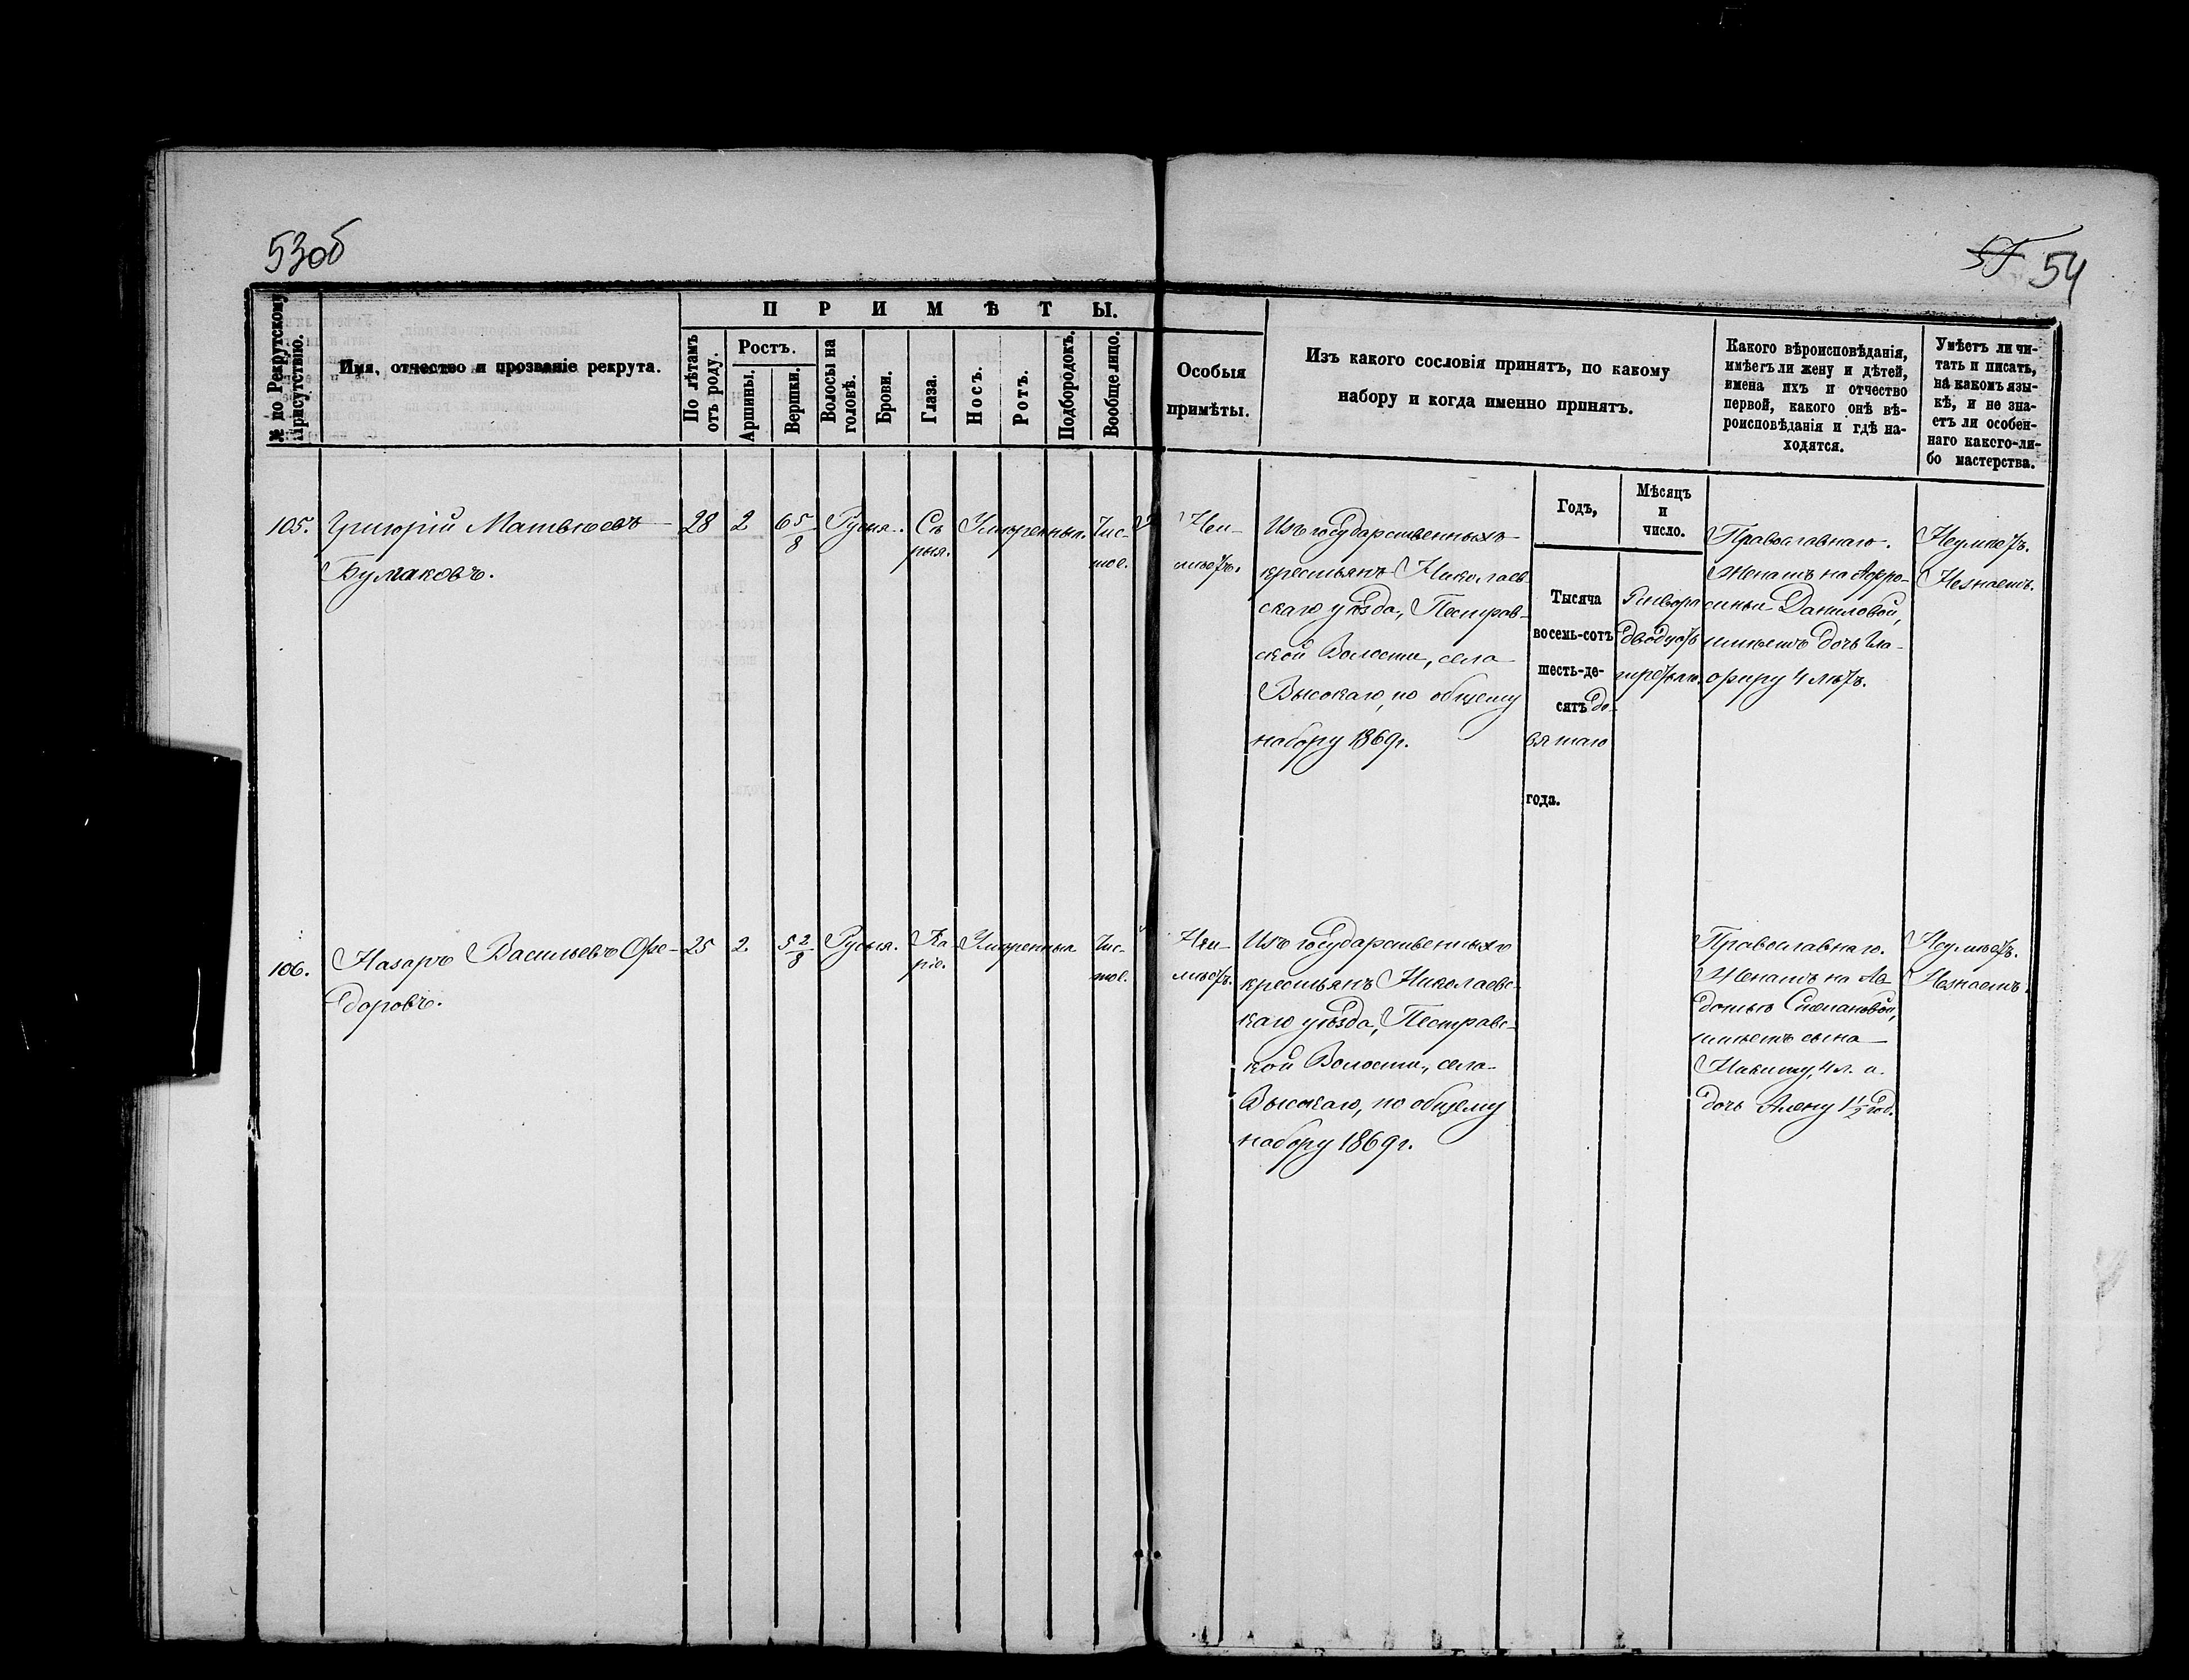 53об
54
П Р И М Ѣ Т Ы.
№ по Рекрутскому
присутствію.
Имя, отчество и прозваніе рекрута.
По лѣтамъ
отъ роду.
Ростъ.
Аршины.
Вершки.
Волосы на
головѣ.
Брови.
Глаза.
Носъ.
Ротъ.
Подбородокъ.
Вообще лицо.
Особыя
примѣты.
Изъ какого сословія принятъ, по какому
набору и когда именно принятъ.
Годъ,
Мѣсяцъ
и
число.
Какого вѣроисповѣданія,
имѣетъ ли жену и дѣтей,
имена ихъ и отчество
первой, какого онѣ вѣ-
роисповѣданія и гдѣ на-
ходятся.
Умѣетъ ли чи-
тать и писать,
на какомъ язы-
кѣ, и не зна-
етъ ли особен-
наго какого-ли-
бо мастерства.
105.
Григорій Матвѣевъ
Бумаковъ.
28
2
6 5/8
Русыя.
Сѣ
рыя.
Умѣренныя.
Чис-
тое.
Неи-
мѣетъ.
Изъ государственныхъ
крестьянъ Николаев-
скаго уѣзда, Пестрав-
ской Волости, села
Высокаго, по общему
набору 1869 г.
Тысяча
восемь-сотъ
шесть-де-
сятъ де-
вятаго
года.
Генвара
двадцать
третьяго.
Православнаго.
Женатъ на Афро-
синьи Даниловой,
имѣетъ дочь Гла-
фиру 4 лѣтъ.
Неумѣетъ.
Незнаетъ.
106.
Назаръ Васильевъ Фе-
доровъ.
25
2.
5 2/8
Русыя.
Ка-
ріе.
Умѣренныя
Чис-
тое.
Неи-
мѣетъ.
Изъ государственныхъ
крестьянъ Николаевс-
каго уѣзда, Пестравс-
кой Волости, села
Высокаго, по общему
набору 1869 г.
Православнаго.
Женатъ на Ав-
дотьѣ Степановой,
имѣетъ сына
Никиту, 4 л. и
дочь Алену 1 1/2 год.
Неумѣетъ.
Незнаетъ.